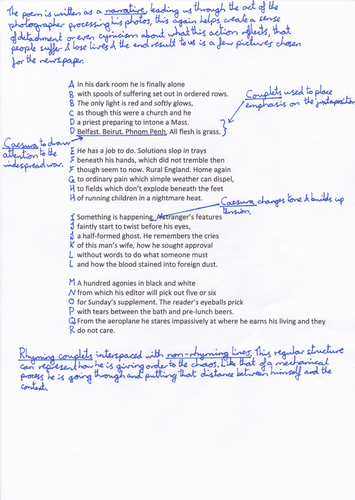 The poem is written as a narrative, leading us through the act of the
photographer processing his photos, this again helps create a sense
of detachment or even cynicism about what this action reflects, that
people suffer & lose lives & the end result to us is a few pictures chosen
for the newspaper.
A In his dark room he is finally alone
B with spools of suffering set out in ordered rows.
B The only light is red and softly glows,
C as though this were a church and he
D a priest preparing to intone a Mass.
D Belfast. Beirut. Phnom Penh. All flesh is grass.
Couplets used to place
emphasis on the juxtaposition
Caesura to draw
attention to the
widespread war.
E He has a job to do. Solutions slop in trays
F beneath his hands, which did not tremble then
F though seem to now. Rural England. Home again
G to ordinary pain which simple weather can dispel,
H to fields which don't explode beneath the feet
H of running children in a nightmare heat.
Caesura changes tone & builds up
tension
I Something is happening. A stranger's features
J faintly start to twist before his eyes,
J a half-formed ghost. He remembers the cries
K of this man's wife, how he sought approval
L without words to do what someone must
L and how the blood stained into foreign dust.
M A hundred agonies in black and white
N from which his editor will pick out five or six
O for Sunday's supplement. The reader's eyeballs prick
P with tears between the bath and pre-lunch beers.
Q From the aeroplane he stares impassively at where he earns his living and they
R do not care.
Rhyming couplets interspaced with non-rhyming lines. This regular structure
can represent how he is giving order to the chaos. Like that of a mechanical
process he is going through and putting that distance between himself and the
content.